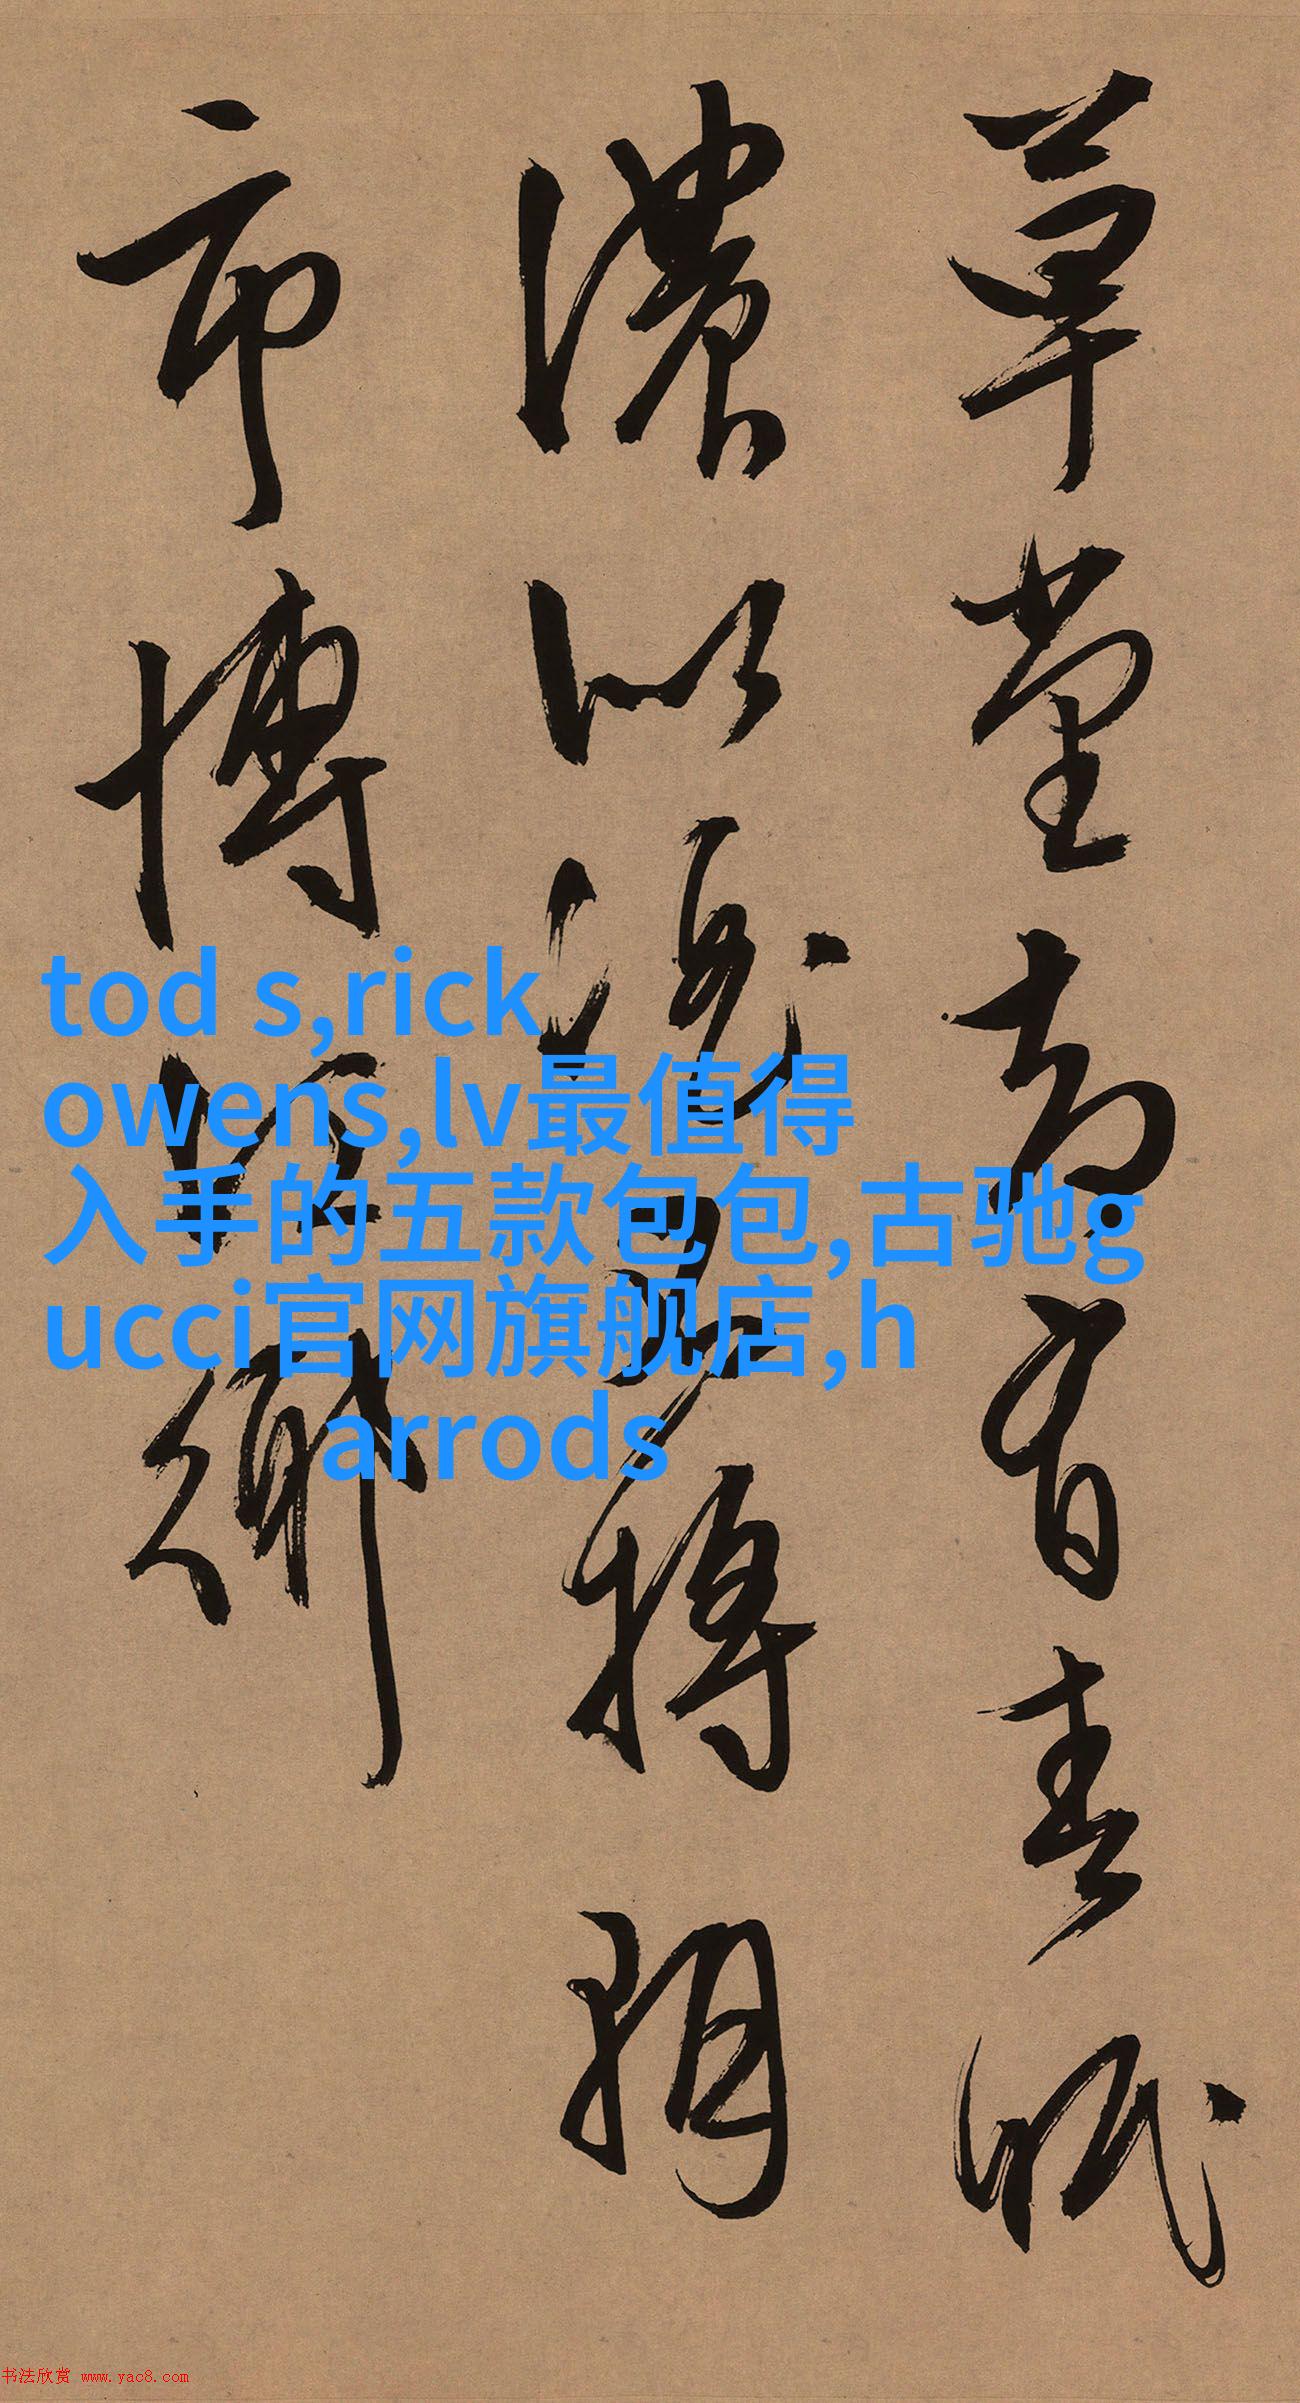 草堂却有春眠
濃以將朝
市博江鄉
tod s,rick
owens,lv最值得
入手的五款包包,古驰g
ucci官网旗舰店,h
arrods
书法欣赏 www.yac8.com